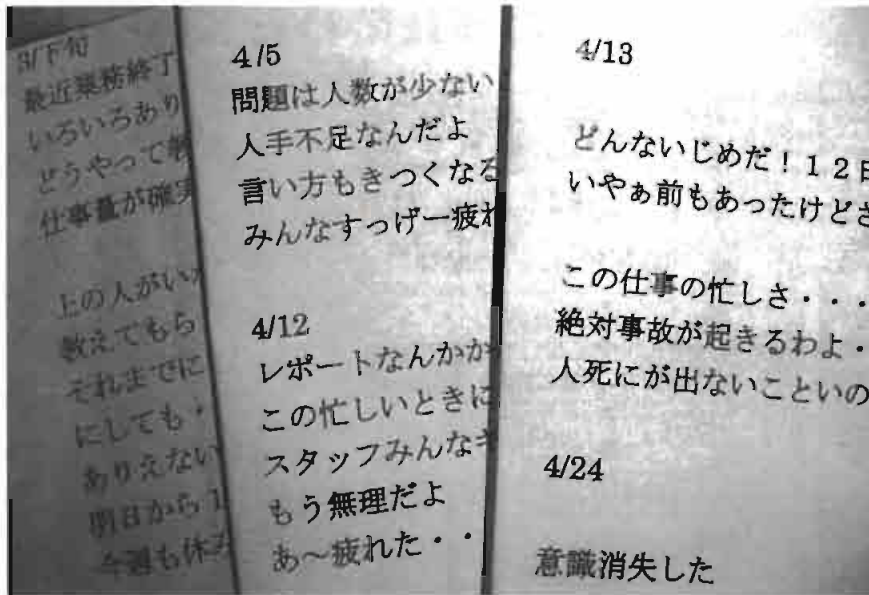 3/下旬
最近業務終了
いろいろあり
どうやって
仕事量が確実
上の人がい
教えてもら
それまでに
にしても・
ありえない
明日から1
今週も休み
4/5
問題は人数が少ない
人手不足なんだよ
言い方もきつくなる
みんなすっげー疲れ
4/12
レポートなんかか
この忙しいときに
スタッフみんなキ
もう無理だよ
あ～疲れた・・
4/13
どんないじめだ！12日
いやぁ前もあったけどさ
この仕事の忙しさ・・・
絶対事故が起きるわよ・
人死にが出ないこといの
4/24
意識消失した